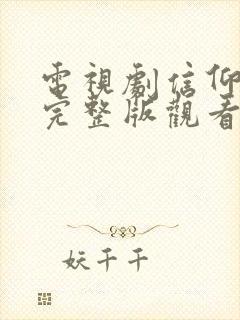 電視劇信仰
完整版觀看
妖千千